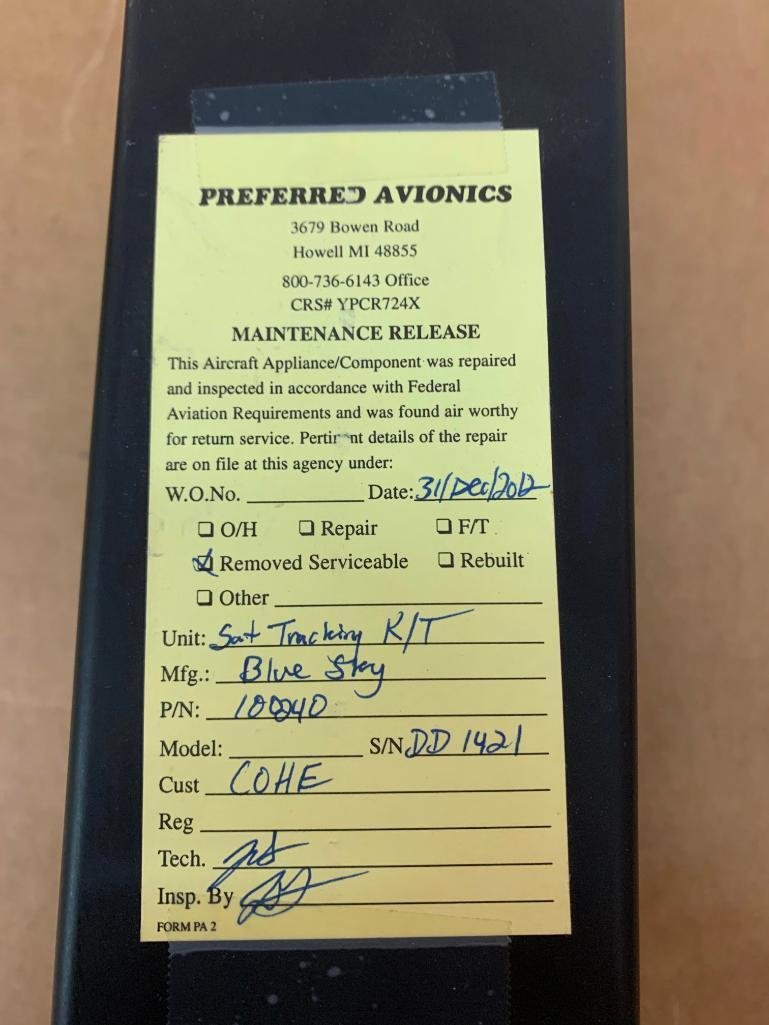 PREFERRED AVIONICS
3679 Bowen Road
Howell MI 48855
800-736-6143 Office
CRS# YPCR724X
MAINTENANCE RELEASE
This Aircraft Appliance/Component was repaired
and inspected in accordance with Federal
Aviation Requirements and was found air worthy
for return service. Pertinent details of the repair
are on file at this agency under:
W.O.No. Date: 31/Dec/2012
O/H Repair F/T
Removed Serviceable Rebuilt
Other
Unit: Sat Tracking R/T
Mfg.: Blue Sky
P/N: 100240
Model: S/N DD 1421
Cust COHE
Reg
Tech.
Insp. By
FORM PA 2